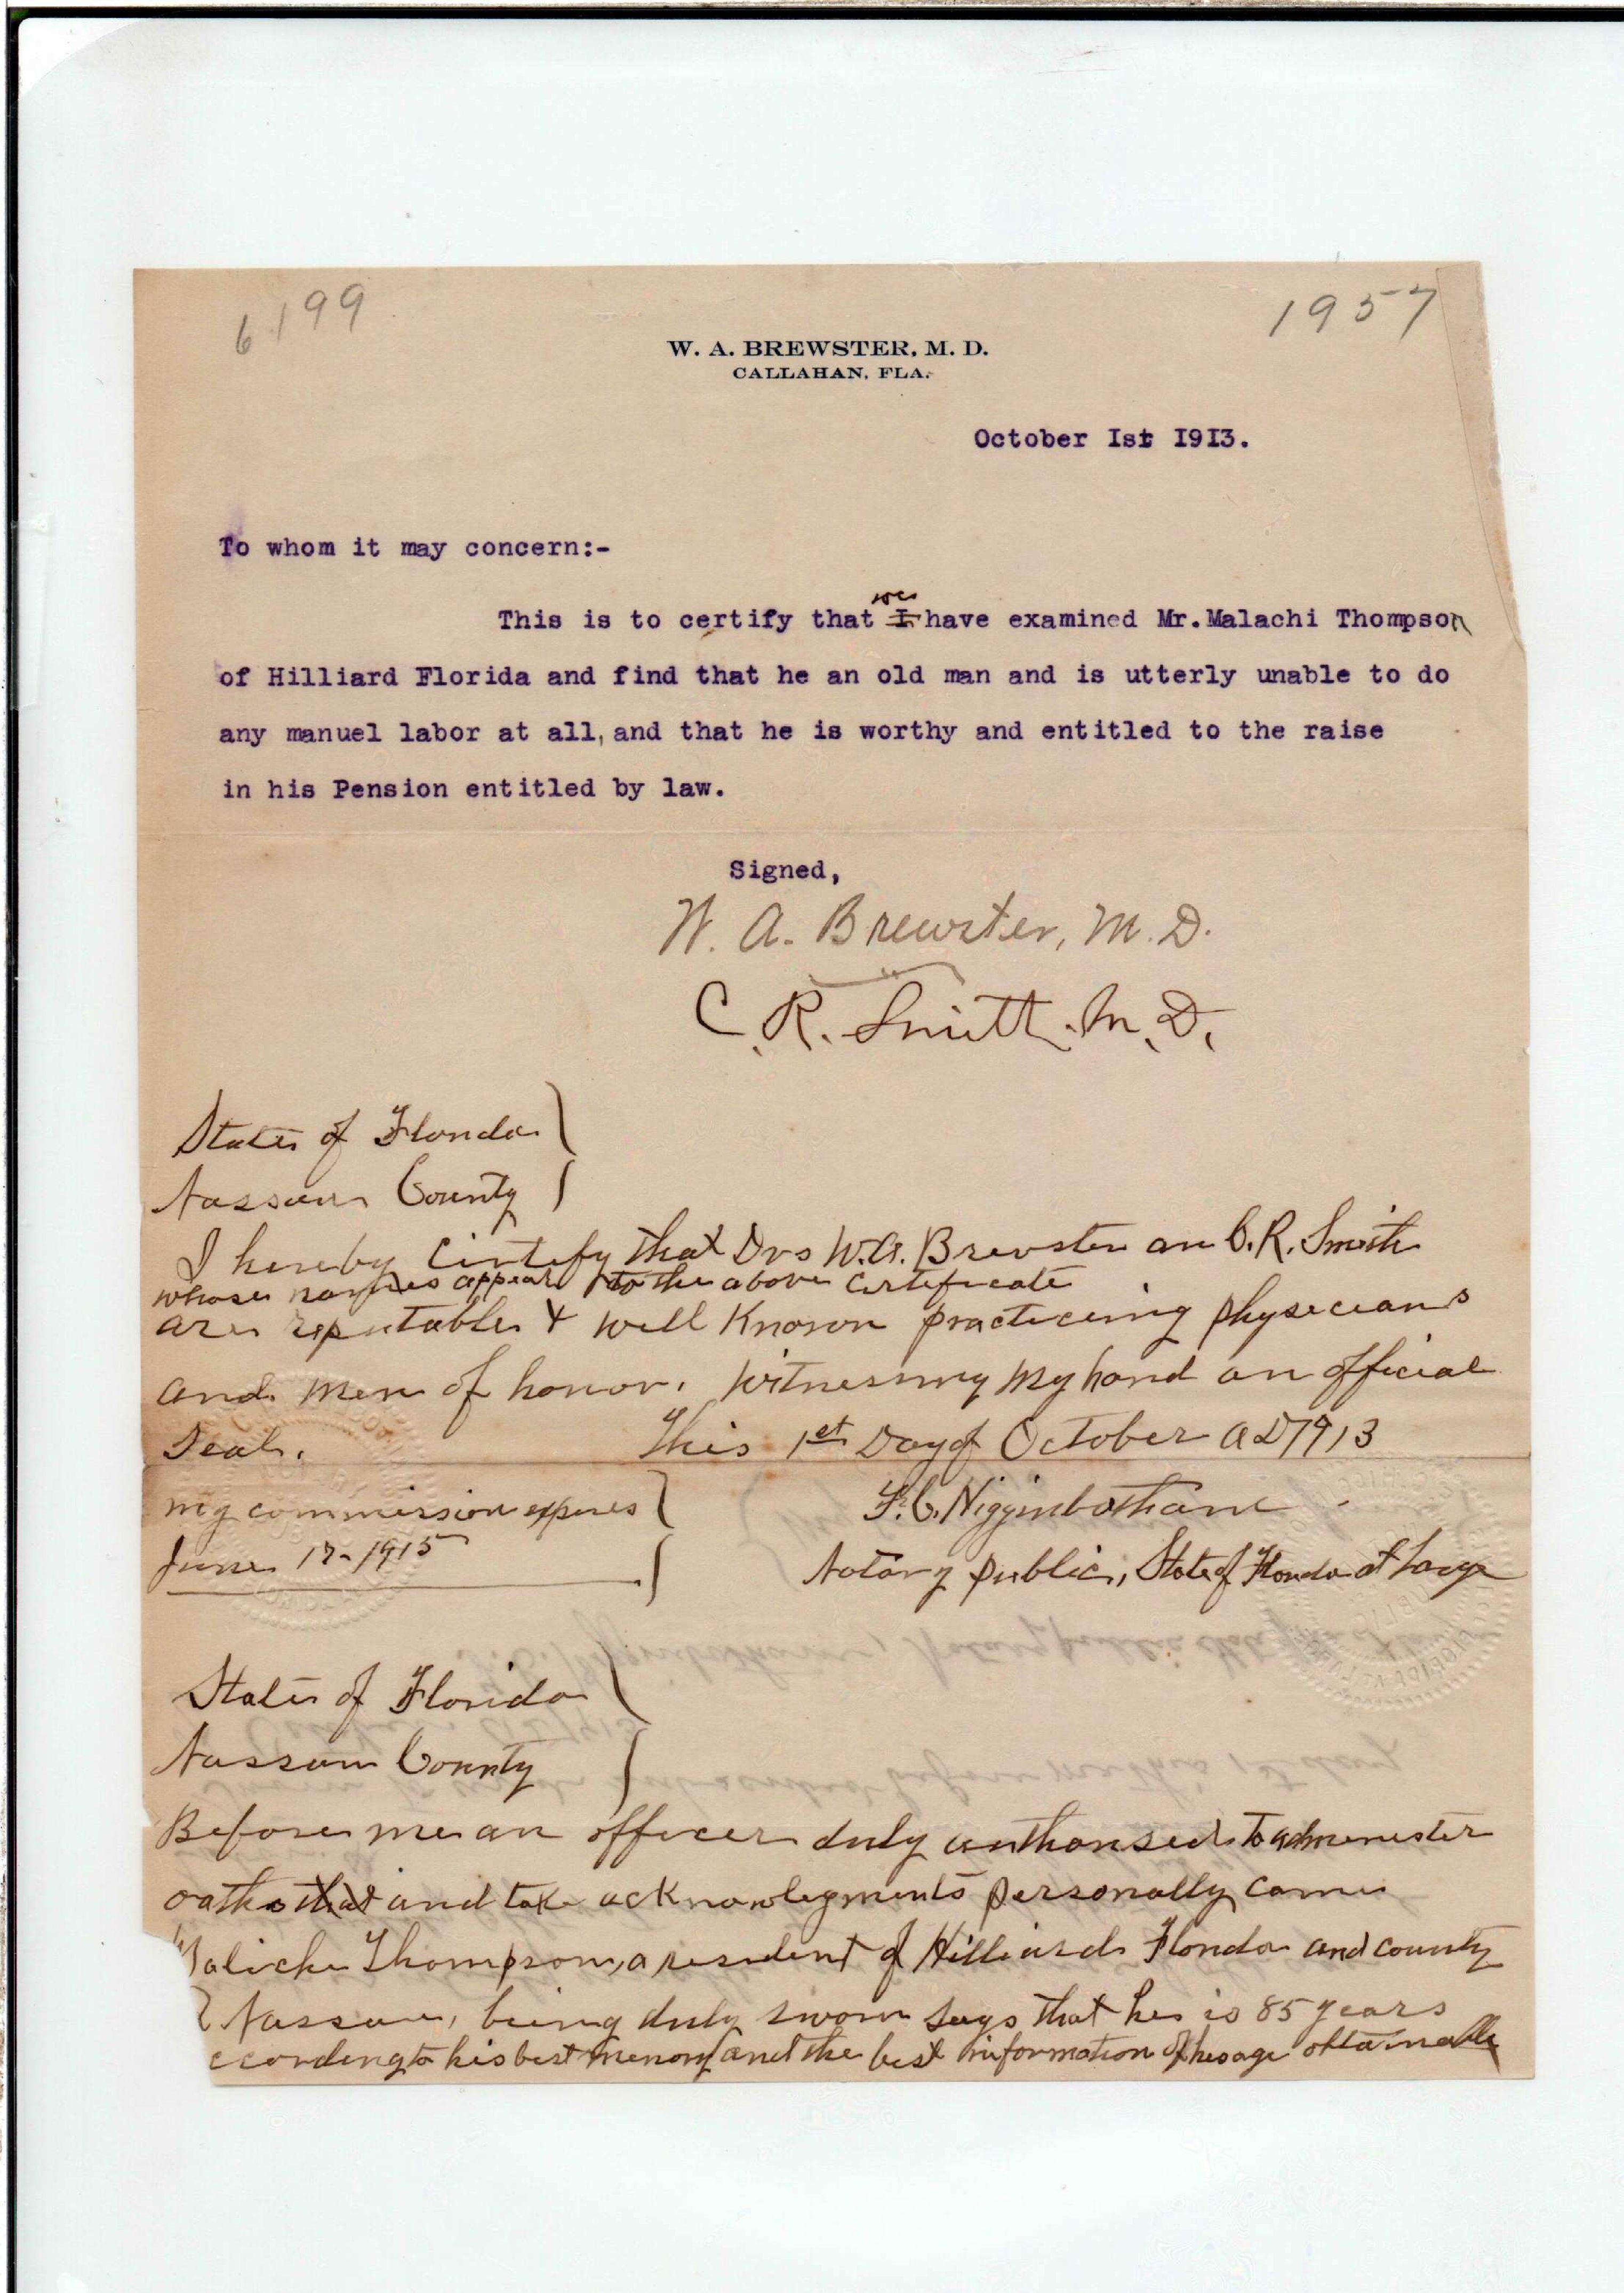 6199
1957
W. A. BREWSTER, M. D.
CALLAHAN, FLA.
October Ist I9I3.
To whom it may concern:-
we
This is to certify that I have examined Mr.Malachi Thompson
of Hilliard Florida and find that he an old man and is utterly unable to do
any manuel labor at all, and that he is worthy and entitled to the raise
in his Pension entitled by law.
Signed,
W. A. Brewster, M. D.
C. R. Smith. M. D.
State of Florida
Nassau County
I hereby Certify that Drs W.A. Brewster an C. R. Smith
whose names appear to the above certificate
are reputable & well Known practiceing physecians
and men of honor. Witnessing my hand an official
Seal. This 1st Day of October AD 1913
my commission expires
June 17-1915
F. C. Higginbotham
Notary public, State of Florida at Large
State of Florida
Nassau County
Before me an officer duly authorised to admenester
oaths that and take acknowlegments personally came
Maliche Thompson, a resident of Hilliard Florida and county
Nassau, being duly sworn says that he is 85 years
ccording to his best memory and the best information of his age obtainable